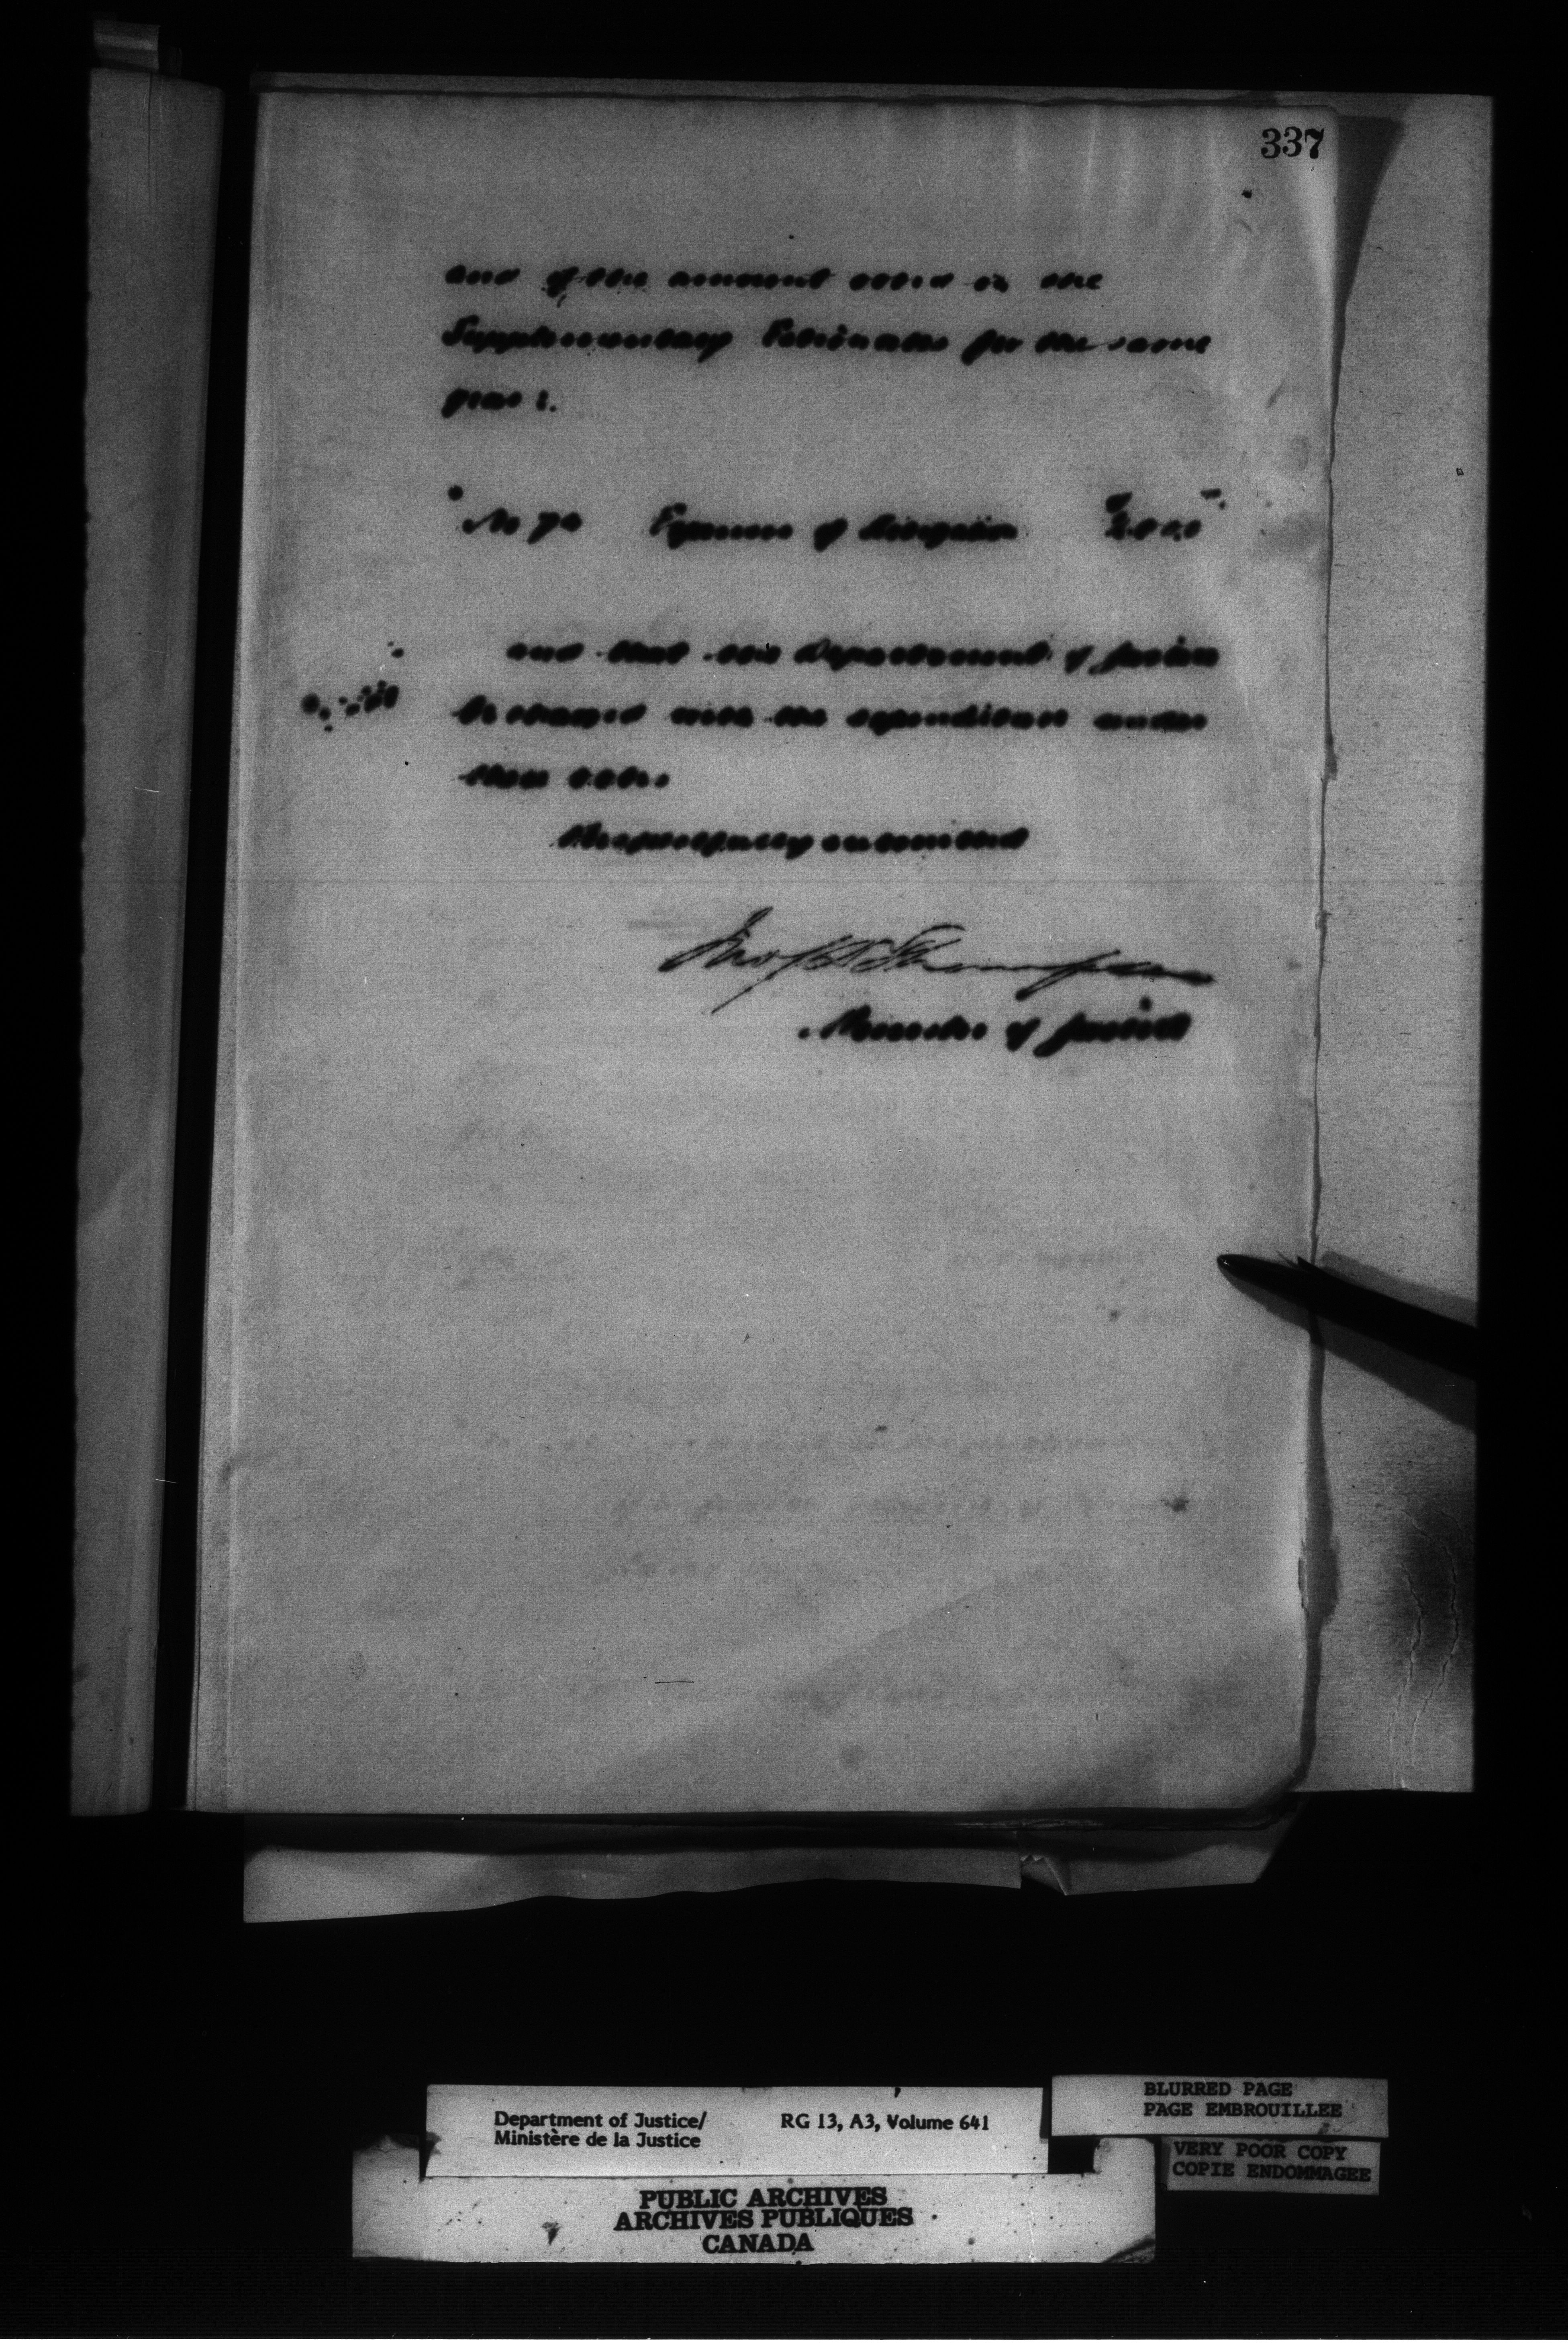 337
and of the amount voted in the
Supplementary Estimates for the same
year :.
"No 70 Expenses of Litigation $2000"
and that the Department of Justice
be charged with the expenditure under
these votes.
Respectfully submitted
Jno S D Thompson
Minister of Justice
Department of Justice/ RG 13, A3, Volume 641
Ministère de la Justice
BLURRED PAGE
PAGE EMBROUILLEE
VERY POOR COPY
COPIE ENDOMMAGEE
PUBLIC ARCHIVES
ARCHIVES PUBLIQUES
CANADA